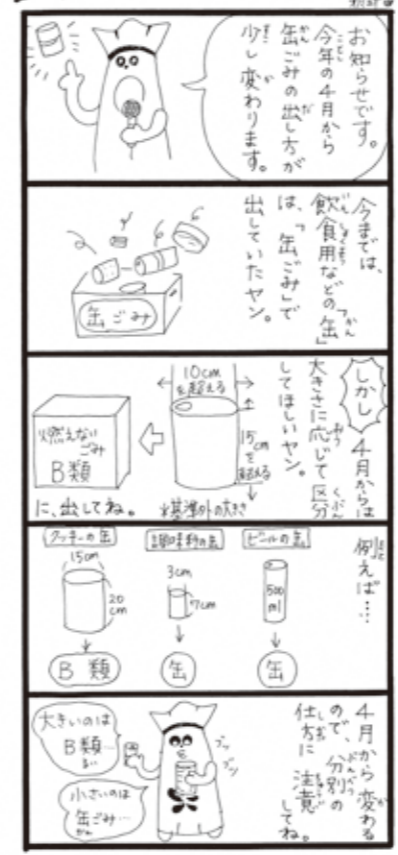 お知らせです。
今年の4月から
缶ごみの出し方が
少し変わります。
今までは、
飲食用などの缶」
は、「缶ごみ」で
出していたヤン。
缶ごみ
しかし
4月からは
大きさに応じて区分
してほしいヤン。
10cm
を超える
15cm
を
超える
※基準外の大きさ
燃えない
ごみ
B類
に、出してね。
例えば…
ビールの缶
500
ml
缶
調味料の缶
3cm
7cm
缶
クッキーの缶
15cm
20
cm
B類
4月から変わる
ので、分別の
仕方に注意
してね。
ブツ
ブツ
大きいのは
B類…
小さいのは
缶ごみ…